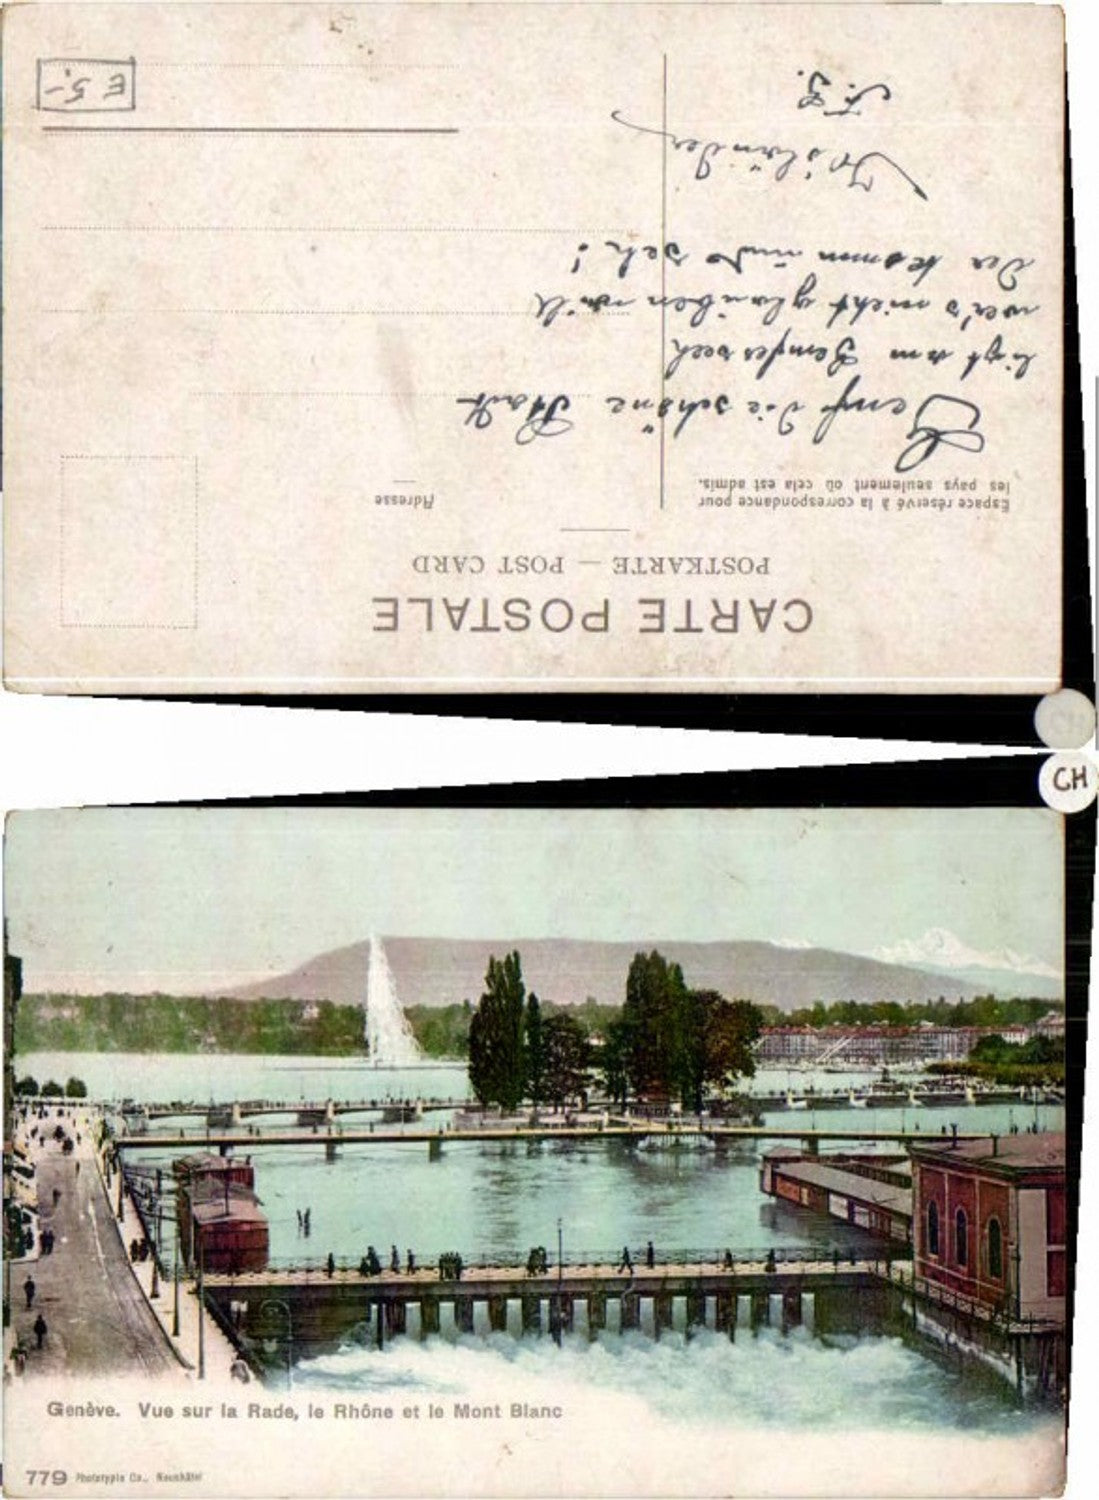 CARTE POSTALE
POSTKARTE — POST CARD
Espace réservé à la correspondance pour
les pays seulement où cela est admis.
Adresse
Genf die schöne Stadt
ligt am Genfersee
wer's nicht glauben will
der komm und seh!
E 5.-
CH
CH
Genève. Vue sur la Rade, le Rhône et le Mont Blanc
779 Phototypie Co., Neuchâtel